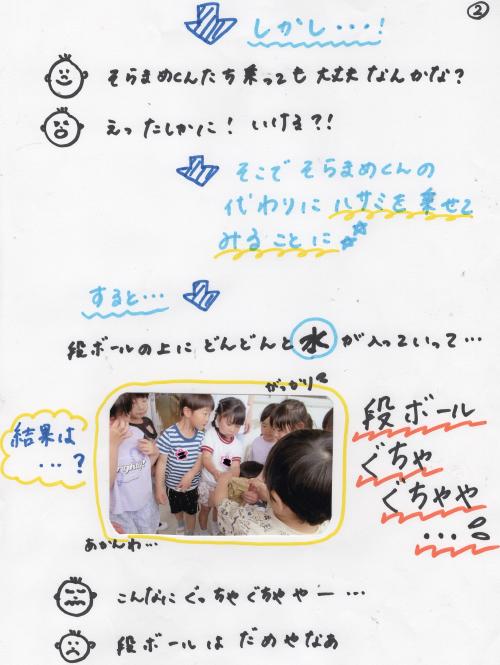 ②
しかし・・・!
そらまめくんたち乗っても大丈夫なんかな?
えったしかに! いける?!
そこでそらまめくんの
代わりにハサミを乗せて
みることに
すると・・・
段ボールの上にどんどんと水が入っていって・・・
がっかり
結果は
・・・?
段ボール
ぐちゃ
ぐちゃや
・・・
あかんわ・・・
こんなにぐっちゃぐちゃやー・・・
段ボールはだめやなあ